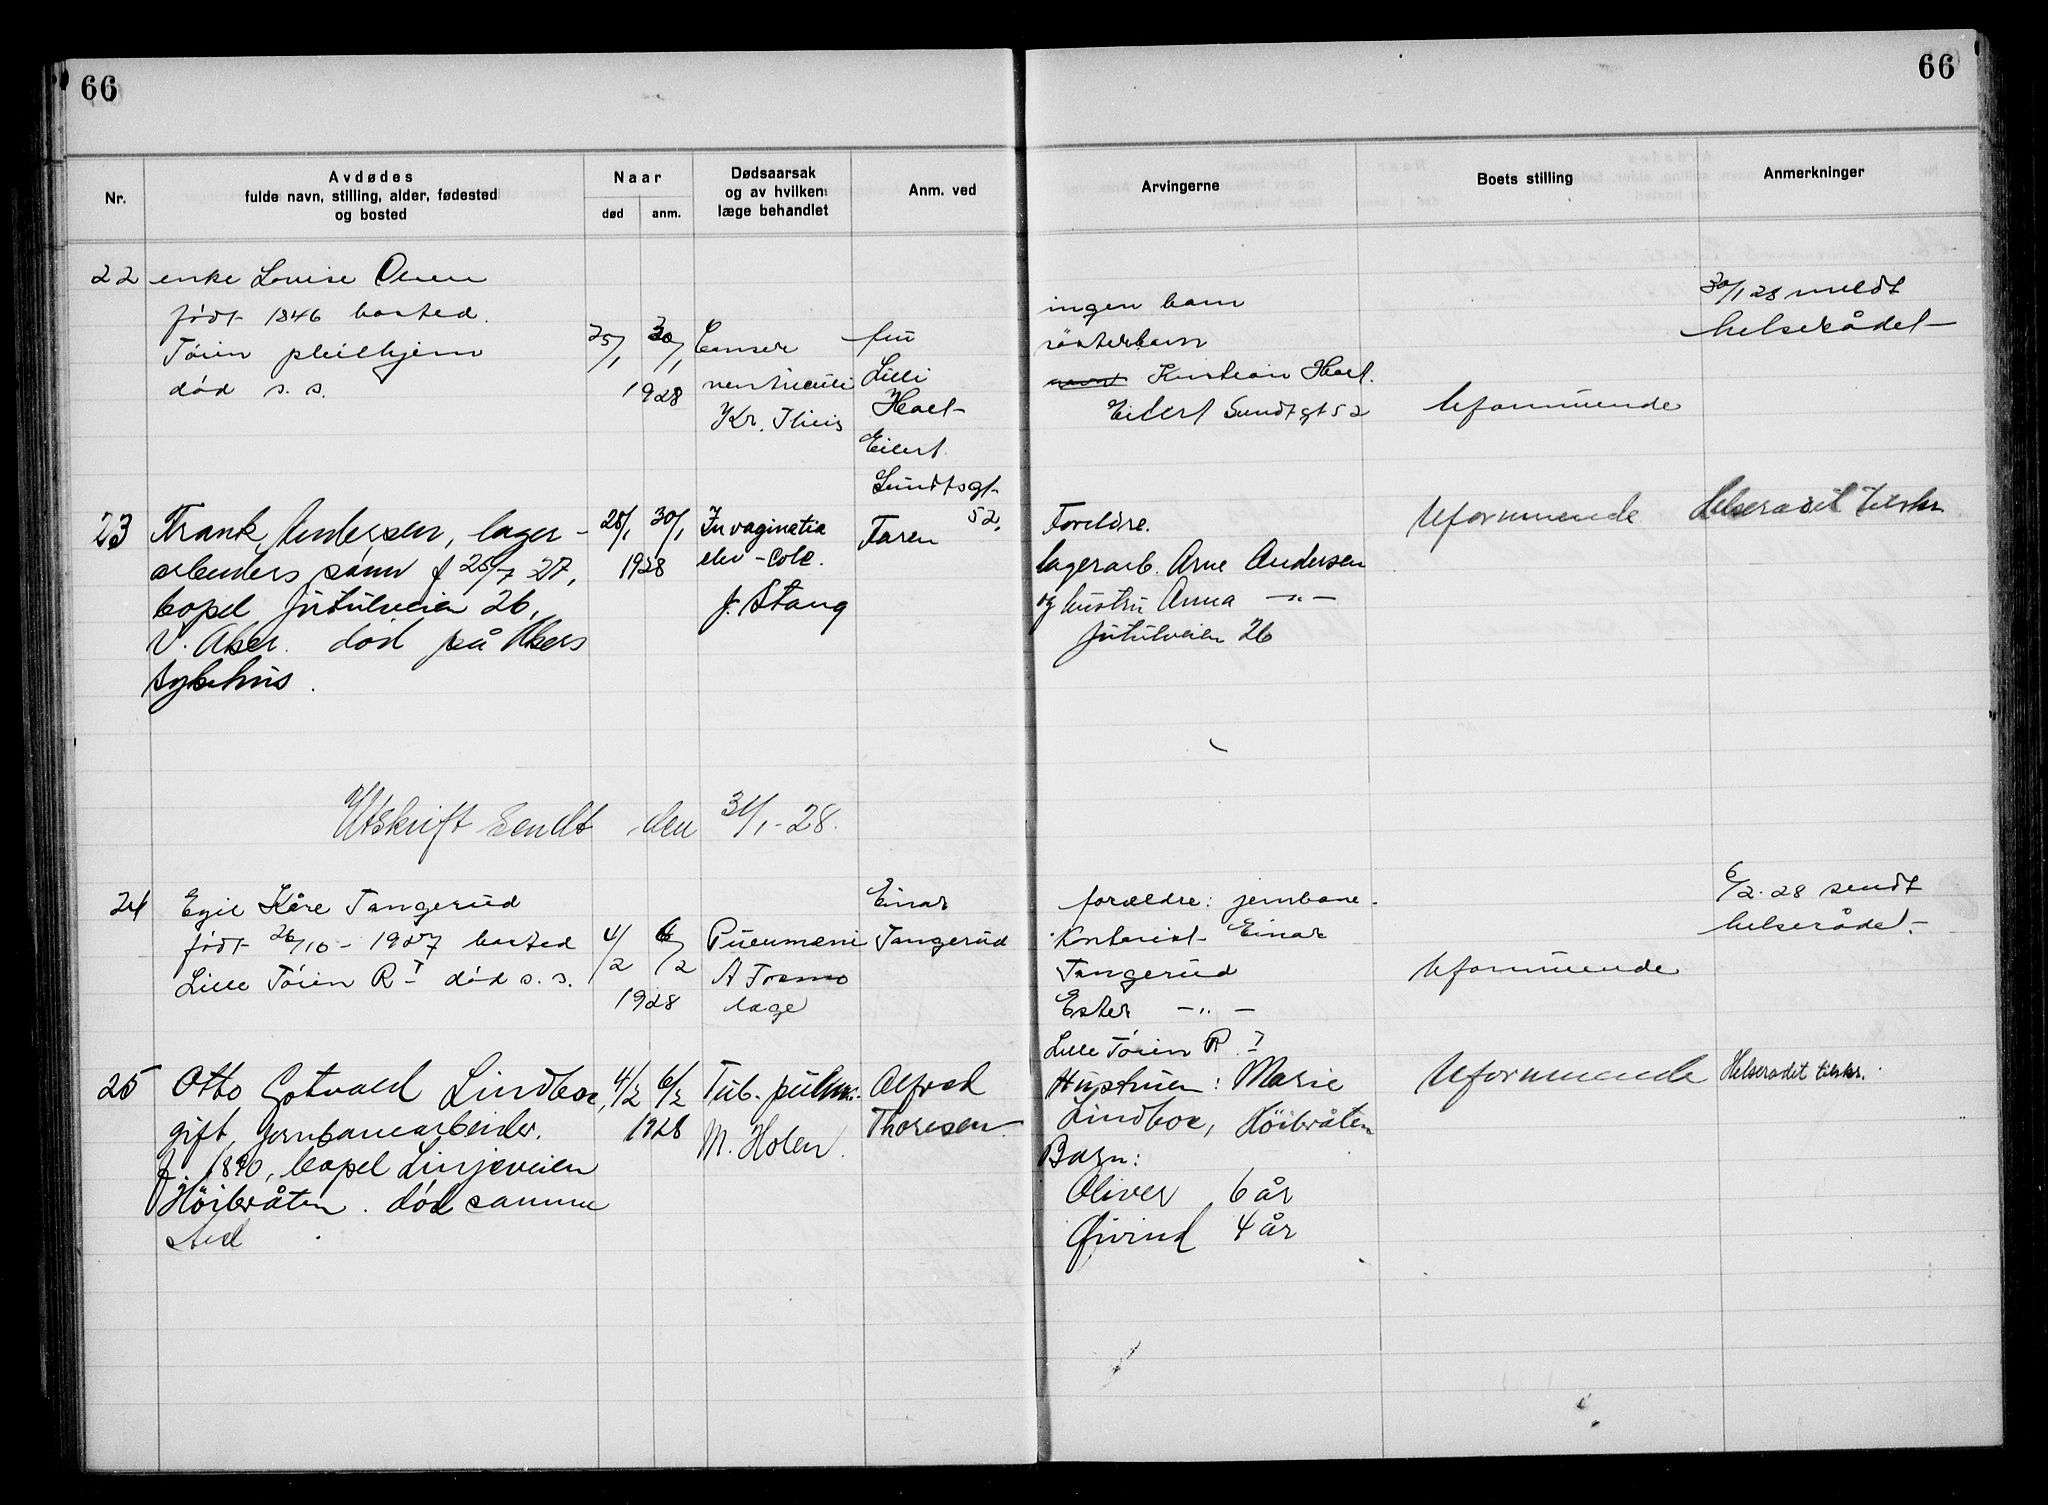 66
66
Nr.
Avdødes
fulde navn, stilling, alder, fødested
og bosted
Naar
død
anm.
Dødsaarsak
og av hvilken
læge behandlet
Anm. ved
Arvingerne
Boets stilling
Anmerkninger
22 enke Louise Olsen
født 1846 bosted.
Tøien pleiehjem
død s. s.
25/1 30/1
1928
Canser
ventriculi
Kr. Thiis
fru
Lilli
Hoel
Eilert
Sundtsgt
52.
ingen barn
søsterbarn
Kristian Hoel.
Eilert Sundtgt 52
Uformuende
30/1 28 meldt
helserådet
23 Frank Andersen, lager-
arbeiders sønn f 25/7 27,
bopel Jutulveien 26,
V. Aker. død på Akers
sykehus.
28/1 30/1
1928
Invaginatia
- Colc.
J. Stang
Faren
Foreldre.
lagerarb. Arne Andersen
og hustru Anna -"-
Jutulveien 26
Uformuende
Helserådet tilskr.
Utskrift sendt den 31/1-28.
24 Egil Kåre Tangerud
født 26/10-1927 bosted
Lille Tøien R I død s. s.
4/2 6/2
1928
Pneumoni
A
læge
Einar
Tangerud
forældre: jernbane-
kontorist Einar
Tangerud
Ester -"-
Lille Tøien R. I
Uformuende
6/2-28 sendt
helserådet.
25 Otto Gotvald Lindboe,
gift, jernbanearbeider.
f. 1890, bopel Linjeveien
Høibråten. død samme
sted
4/2 6/2
1928
Tub. pulm.
M. Holen.
Alfred
Thoresen
Hustruen: Marie
Lindboe, Høibråten
Barn:
Oliver 6 år
Øivind 4 år
Uformuende
Helserådet tilskr.